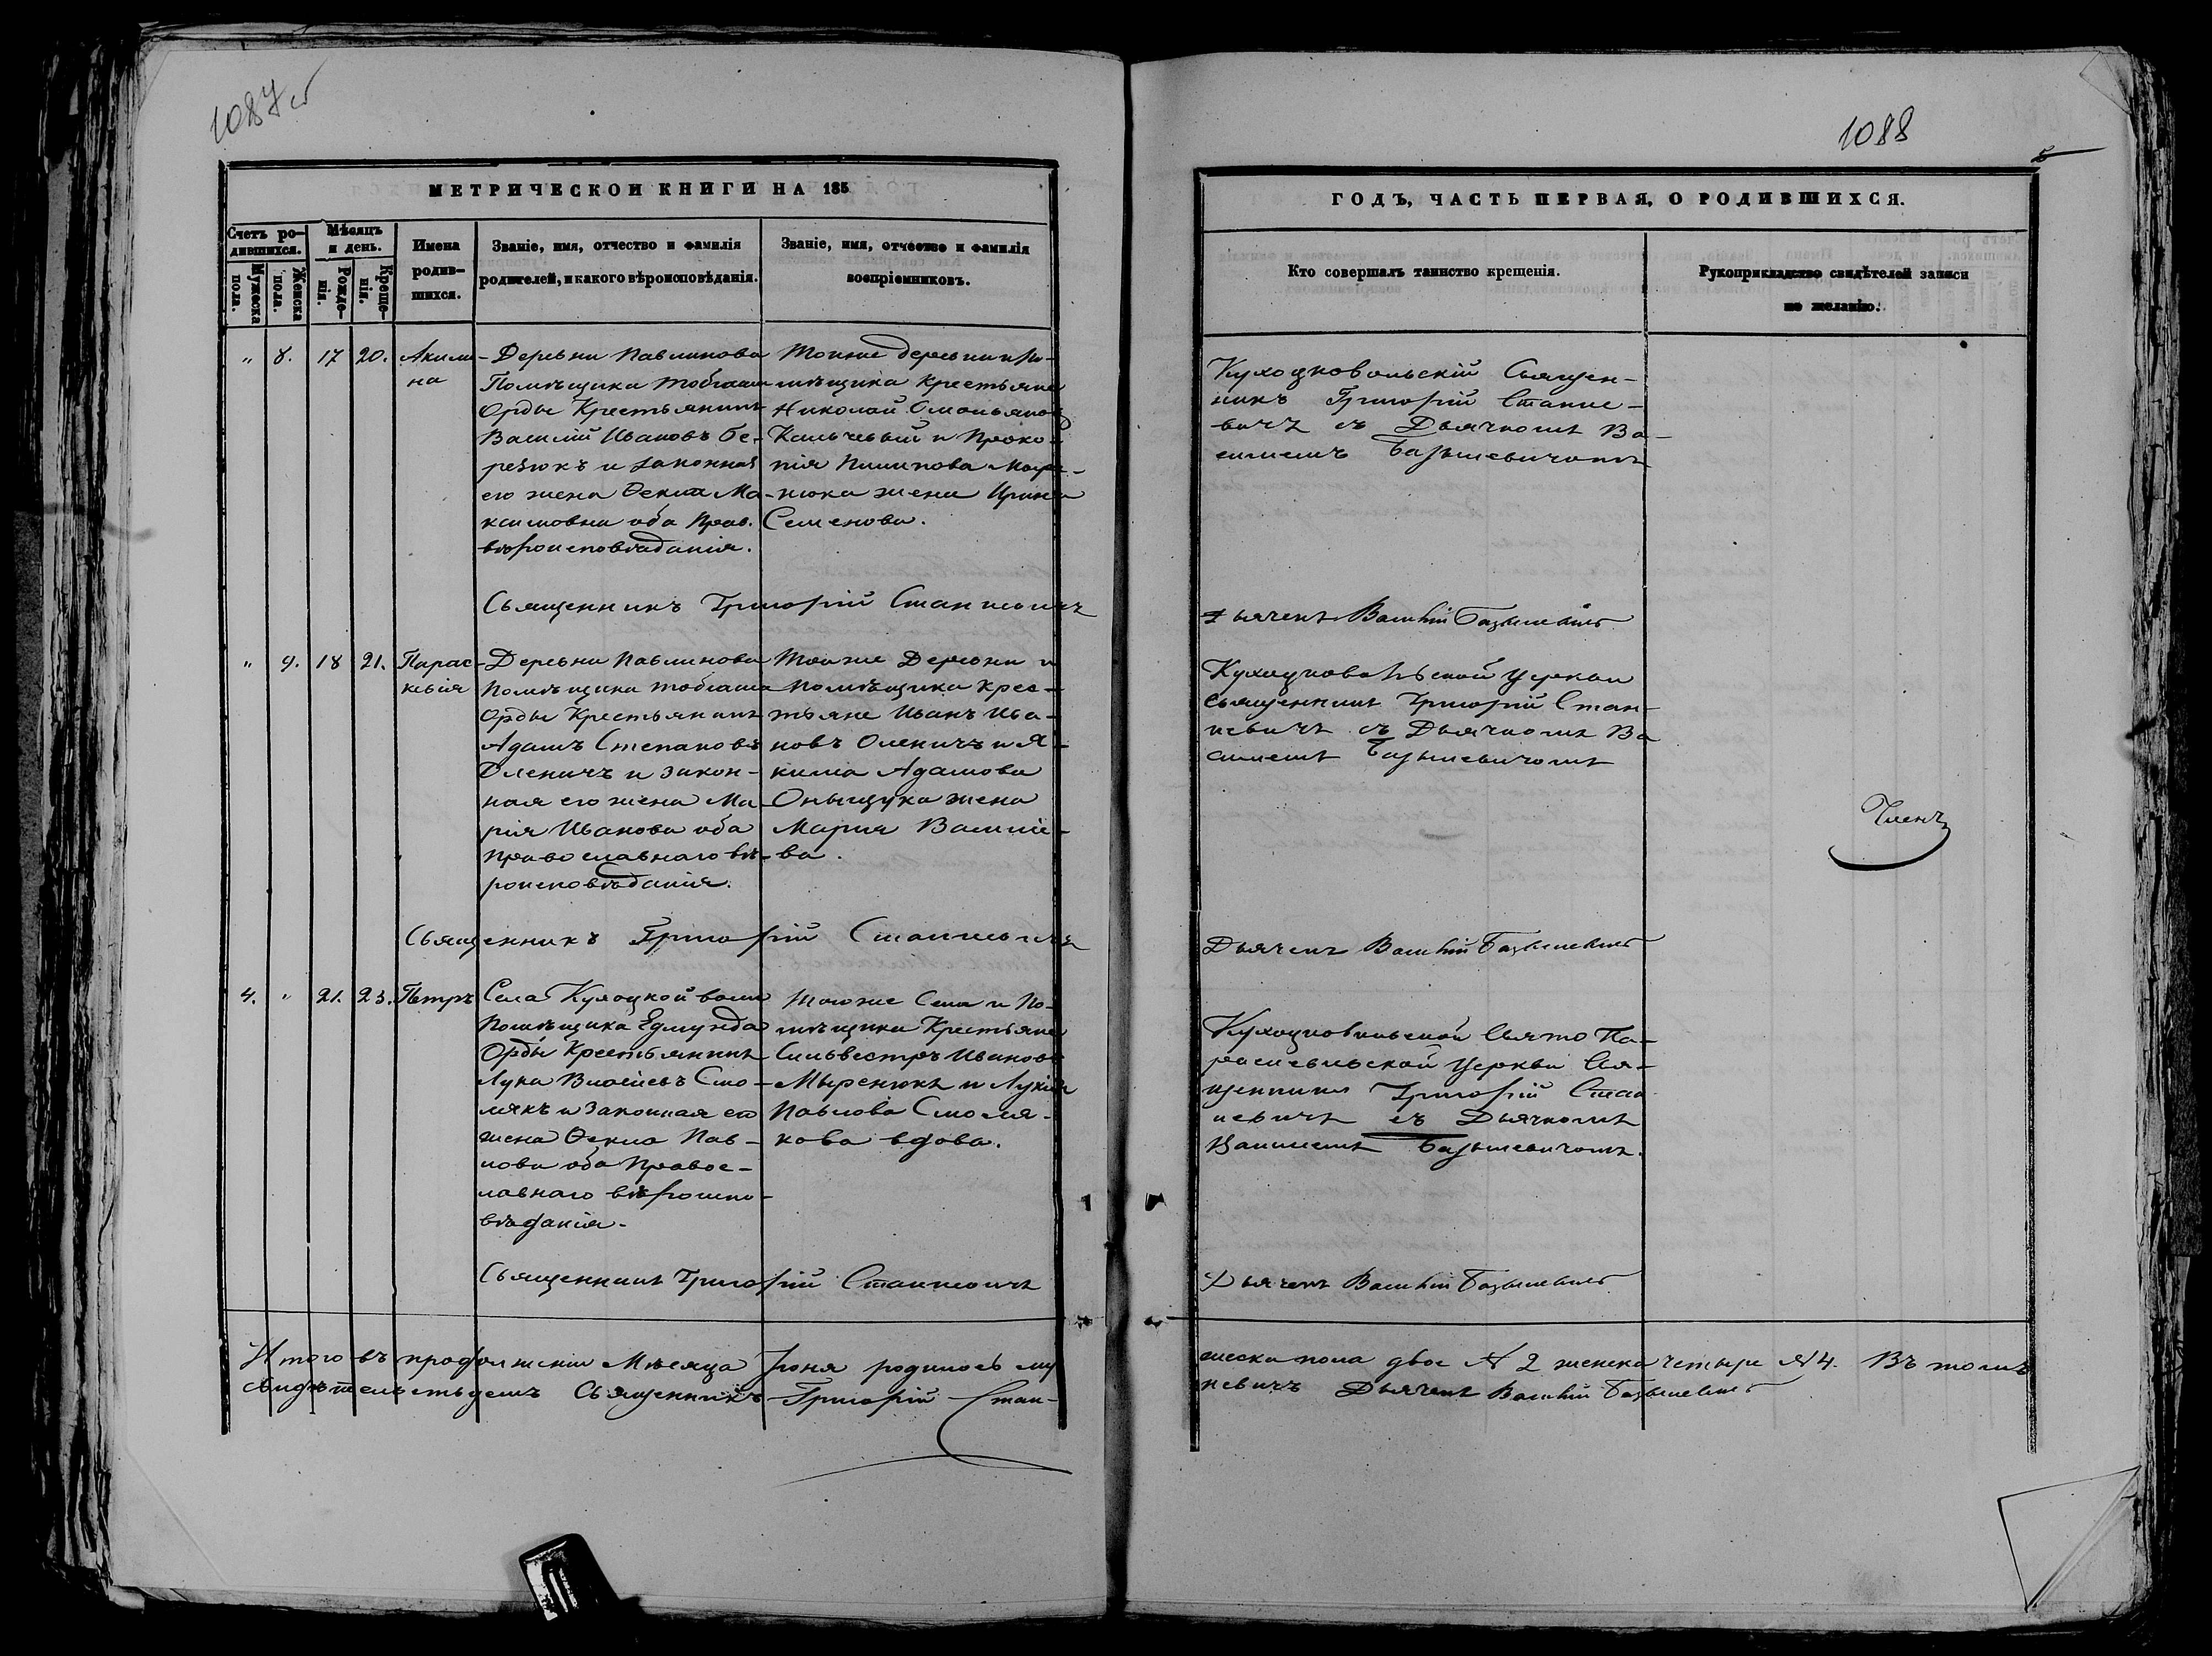 1087 об
МЕТРИЧЕСКОЙ КНИГИ НА 185
Счетъ ро-
дившихся.
Мужеска пола.
Женска пола.
Мѣсяцъ
и день.
Рожде-
нія.
Креще-
нія.
Имена
родив-
шихся.
Званіе, имя, отчество и фамилія
родителей, и какого вѣроисповѣданія.
Званіе, имя, отчество и фамилія
воспріемниковъ.
" 8. 17 20. Акили-
на
Деревни Павлинова
Помѣщика
Орды Крестьянинъ
Василій Ивановъ Бе-
резюкъ и законная
его жена Ѳекла Ма-
ксимовна оба Прав.
вѣроисповѣданія.
Тойже деревни и По-
мѣщика Крестьяне
Николай Омельяновъ
и Проко-
пія Пилипова
нюка жена Ирина
Семенова.
Священникъ Григорій Станкевичъ
" 9. 18 21. Парас-
кевія
Деревни Павлинова
Помѣщика
Орды Крестьянинъ
Адамъ Степановъ
Оленичъ и закон-
ная его жена Ма-
рія Иванова оба
православнаго вѣ-
роисповѣданія.
Тойже Деревни и
Помѣщика крес-
тьяне Иванъ Ива-
новъ Оленичъ и Я-
кима Адамова
Оныщука жена
Марія Василіе-
ва.
Священникъ Григорій Станкевичъ
4. " 21. 23. Петръ
Села Кухоцкой воли
Помѣщика Едмунда
Орды Крестьянинъ
Лука Смо-
лякъ и законная его
жена Ѳекла Пав-
лова оба Правос-
лавнаго вѣроиспо-
вѣданія.
Тогоже Села и По-
мѣщика Крестьяне
Сильвестръ Ивановъ
Мыренюкъ и Лукія
Павлова Смоля-
кова вдова.
Священникъ Григорій Станкевичъ
Итого въ продолженіи Мѣсяца Іюня родилось му
свидѣтельствуемъ Священникъ Григорій Стан-
1088
ГОДЪ, ЧАСТЬ ПЕРВАЯ, О РОДИВШИХСЯ.
Кто совершалъ таинство крещенія.
Рукоприкладство свидѣтелей записи
по желанію.
Кухоцковольскій Священ-
никъ Григорій Станке-
вичъ съ Дьячкомъ Ва-
силіемъ Базылевичомъ
Дьячекъ Василій Базылевичъ
Кухоцковольской Церкви
Священникъ Григорій Стан-
кевичъ съ Дьячкомъ Ва
силіемъ Базылевичомъ
Членъ
Дьячекъ Василій Базылевичъ
Кухоцковольской Свято Па-
раскевіевской Церкви Свя-
щенникъ Григорій Стан
кевичъ съ Дьячкомъ
Василіемъ Базылевичомъ.
Дьячекъ Василій Базылевичъ
жеска пола двое № 2 женска четыре № 4. Въ томъ
кевичъ Дьячекъ Василій Базылевичъ